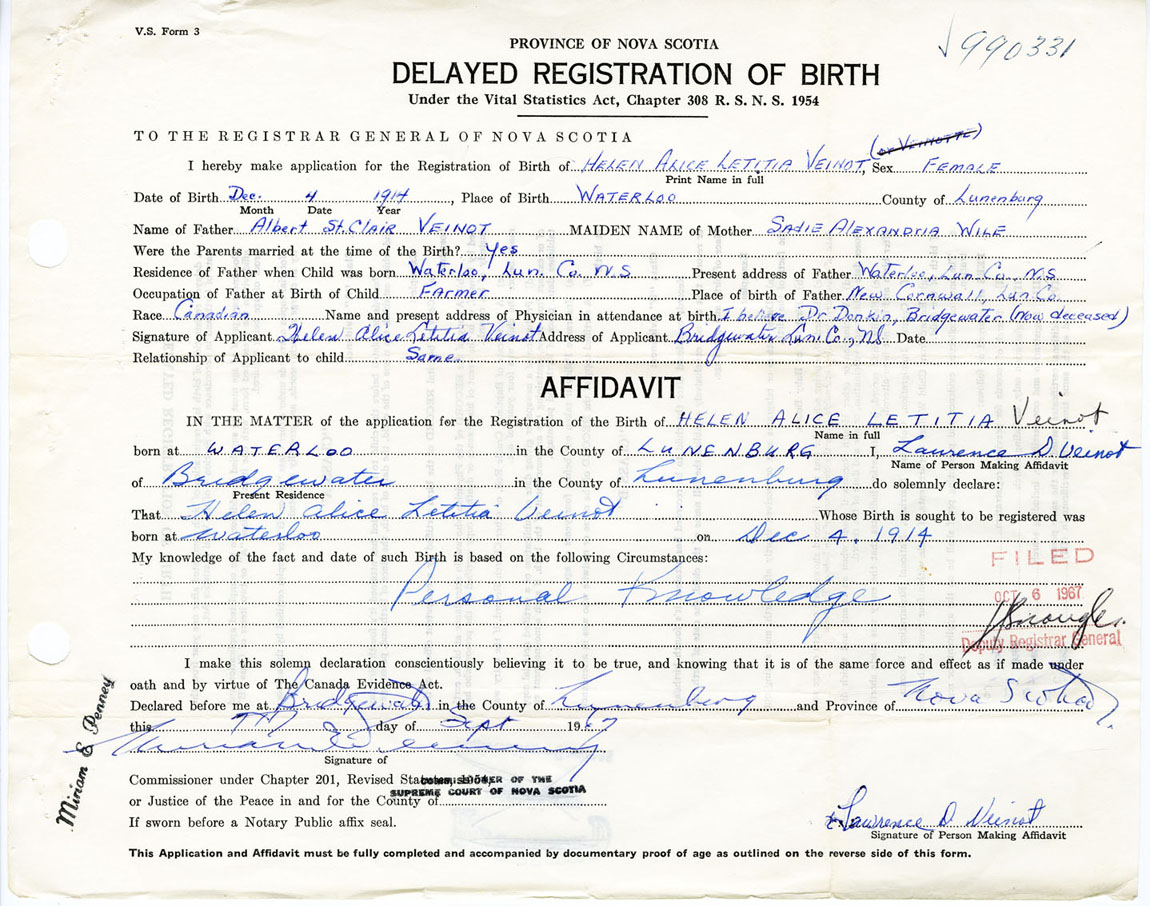 V.S. Form 3
990331
PROVINCE OF NOVA SCOTIA
DELAYED REGISTRATION OF BIRTH
Under the Vital Statistics Act, Chapter 308 R. S. N. S. 1954
TO THE REGISTRAR GENERAL OF NOVA SCOTIA
(or VEINOTTE)
I hereby make application for the Registration of Birth of HELEN ALICE LETITIA VEINOT, Sex FEMALE
Print Name in full
Date of Birth Dec. 4 1914, Place of Birth WATERLOO County of Lunenburg
Month Date Year
Name of Father Albert St. Clair VEINOT MAIDEN NAME of Mother SADIE ALEXANDRIA WILE
Were the Parents married at the time of the Birth? Yes
Residence of Father when Child was born Waterloo, Lun. Co. N.S Present address of Father Waterloo, Lun Co., N.S
Occupation of Father at Birth of Child FARMER Place of birth of Father New Cornwall, Lun Co.
Race Canadian Name and present address of Physician in attendance at birth I believe Dr Donkin, Bridgewater (Now deceased)
Signature of Applicant Helen Alice Letitia Veinot Address of Applicant Bridgewater Lun. Co., NS Date
Relationship of Applicant to child Same
AFFIDAVIT
IN THE MATTER of the application for the Registration of the Birth of HELEN ALICE LETITIA Veinot
Name in full
born at WATERLOO in the County of LUNENBURG I, Lawrence D. Veinot
Name of Person Making Affidavit
of Bridgewater in the County of Lunenburg do solemnly declare:
Present Residence
That Helen Alice Letitia Veinot Whose Birth is sought to be registered was
born at Waterloo on Dec 4, 1914
My knowledge of the fact and date of such Birth is based on the following Circumstances:
FILED
Personal Knowledge
OCT 6 1967
Deputy Registrar General
I make this solemn declaration conscientiously believing it to be true, and knowing that it is of the same force and effect as if made under
oath and by virtue of The Canada Evidence Act.
Declared before me at Bridgewater in the County of Lunenburg and Province of Nova Scotia
this day of Sept 1967
Miriam E Penney
Signature of
Commissioner under Chapter 201, Revised Statutes, 1954,
SUPREME COURT OF NOVA SCOTIA
or Justice of the Peace in and for the County of
If sworn before a Notary Public affix seal.
Miriam E Penney
Lawrence D Veinot
Signature of Person Making Affidavit
This Application and Affidavit must be fully completed and accompanied by documentary proof of age as outlined on the reverse side of this form.